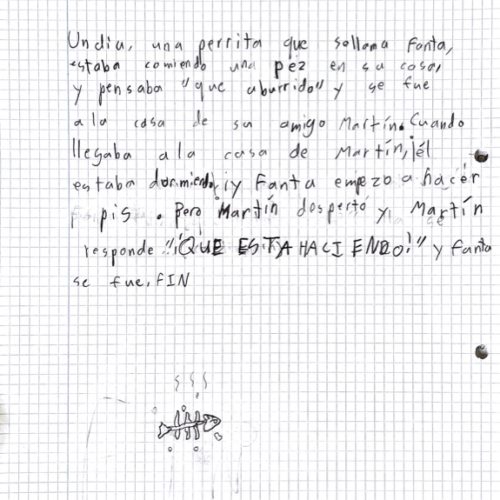 Un dia, una perrita que sellama Fanta,
estaba comiendo una pez en su casa,
y pensaba "que aburrido" y se fue
a la casa de su amigo Martín. Cuando
llegaba a la casa de Martín, él
estaba durmiendo, y Fanta empezo a hacer
pis. Pero Martín despertó y Martín
responde "¡QUE ESTA HACIENDO!" y Fanta
se fue. FIN